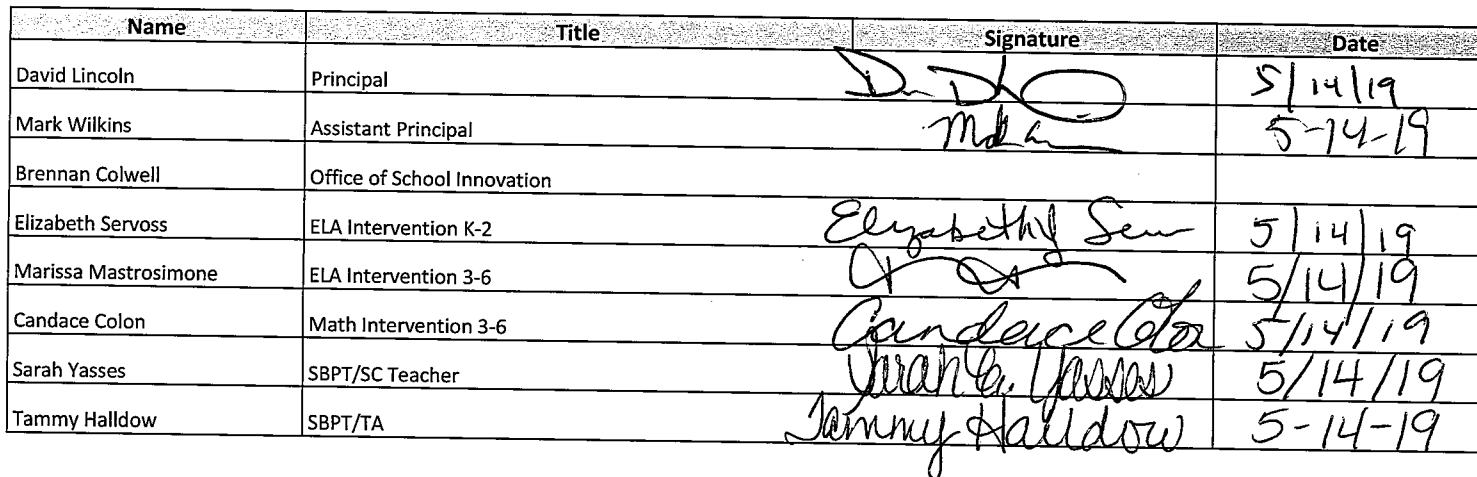 Name Title Signature Date
David Lincoln Principal 5/14/19
Mark Wilkins Assistant Principal 5-14-19
Brennan Colwell Office of School Innovation
Elizabeth Servoss ELA Intervention K-2 Elizabeth 5/14/19
Marissa Mastrosimone ELA Intervention 3-6 5/14/19
Candace Colon Math Intervention 3-6 Candace Colon 5/14/19
Sarah Yasses SBPT/SC Teacher Sarah E. Yasses 5/14/19
Tammy Halldow SBPT/TA Tammy Halldow 5-14-19